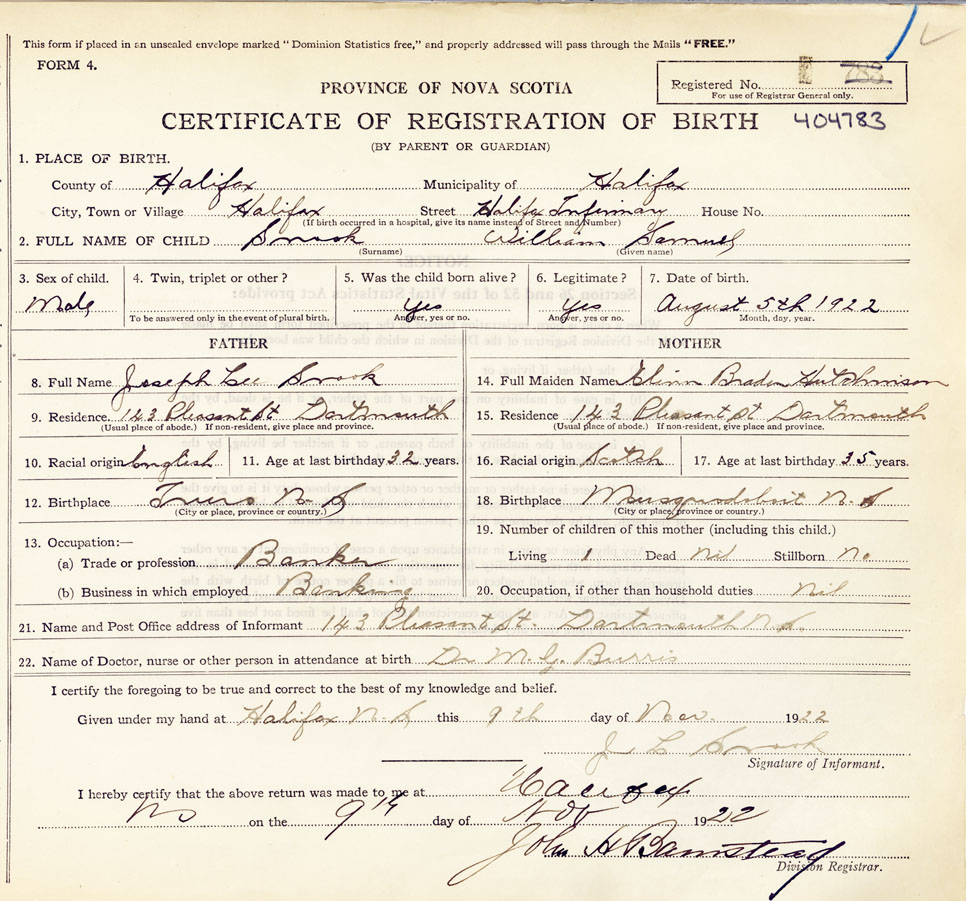 This form if placed in an unsealed envelope marked "Dominion Statistics free," and properly addressed will pass through the Mails "FREE."
FORM 4.
Registered No. 788
For use of Registrar General only.
PROVINCE OF NOVA SCOTIA
CERTIFICATE OF REGISTRATION OF BIRTH 404783
(BY PARENT OR GUARDIAN)
1. PLACE OF BIRTH.
County of Halifax Municipality of Halifax
City, Town or Village Halifax Street Halifax Infirmary House No.
(If birth occurred in a hospital, give its name instead of Street and Number)
2. FULL NAME OF CHILD Snook William Samuel
(Surname) (Given name)
3. Sex of child. 4. Twin, triplet or other? 5. Was the child born alive? 6. Legitimate? 7. Date of birth.
Male Yes Yes August 5th 1922
To be answered only in the event of plural birth. Answer, yes or no. Answer, yes or no. Month, day, year.
FATHER MOTHER
8. Full Name Joseph Lee Snook 14. Full Maiden Name Braden Hutchinson
9. Residence. 143 Pleasant St Dartmouth 15. Residence 143 Pleasant St Dartmouth
(Usual place of abode.) If non-resident, give place and province. (Usual place of abode.) If non-resident, give place and province.
10. Racial origin English 11. Age at last birthday 32 years. 16. Racial origin Scotch 17. Age at last birthday 35 years.
12. Birthplace Truro N. S 18. Birthplace Musquodoboit N. S
(City or place, province or country.) (City or place, province or country.)
19. Number of children of this mother (including this child.)
13. Occupation:—
(a) Trade or profession Banker Living 1 Dead Nil Stillborn No
(b) Business in which employed Banking 20. Occupation, if other than household duties Nil
21. Name and Post Office address of Informant 143 Pleasant St. Dartmouth N. S.
22. Name of Doctor, nurse or other person in attendance at birth Dr M. G. Burris
I certify the foregoing to be true and correct to the best of my knowledge and belief.
Given under my hand at Halifax N. S this 9th day of Nov. 1922
J L Snook
Signature of Informant.
I hereby certify that the above return was made to me at Halifax
NS on the 9th day of Nov 1922
John H Barnstead
Division Registrar.